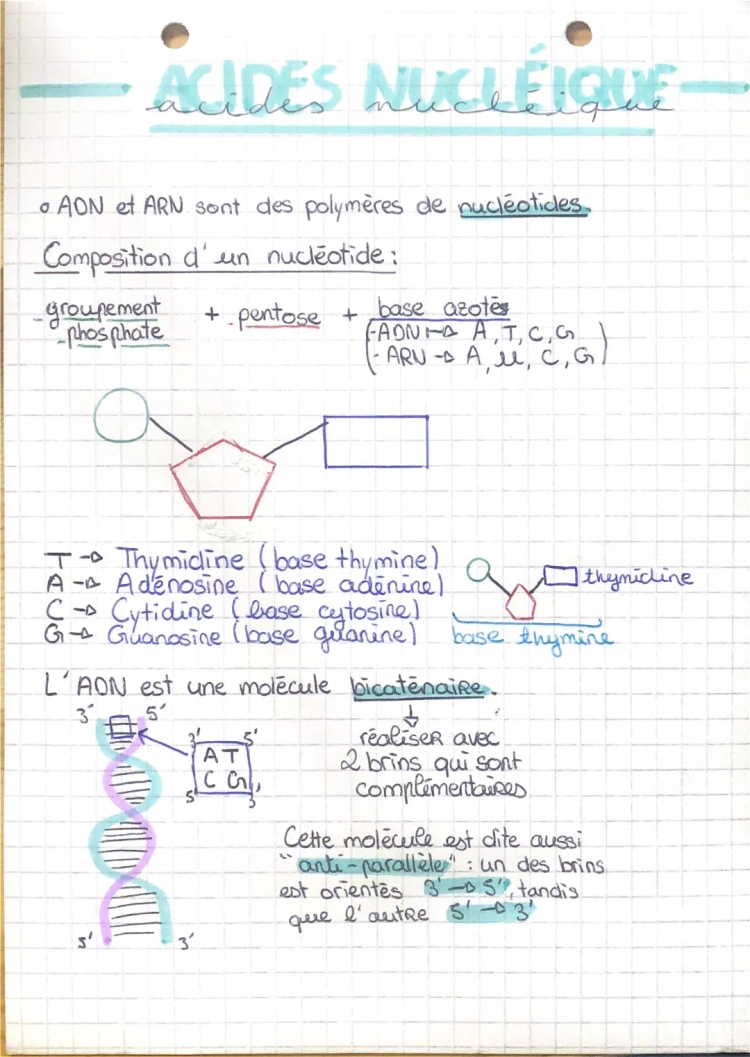 ACIDES NUCLÉIQUE
acides nucléique
ADN et ARN sont des polymères de nucléotides.
Composition d'un nucléotide :
- groupement + - pentose + base azotés
- phosphate
(- ADN → A, T, C, G
- ARN → A, U, C, G)
T → Thymidine (base thymine)
A → Adénosine (base adénine)
C → Cytidine (base cytosine)
G → Guanosine (base guanine)
thymidine
base thymine
L'ADN est une molécule bicaténaire.
↓
réaliser avec
2 brins qui sont
complémentaires
3' 5'
3' 5'
A T
C G
5' 3'
Cette molécule est dite aussi
"anti-parallèle" : un des brins
est orientés 3' → 5', tandis
que l'autre 5' → 3'
5' 3'